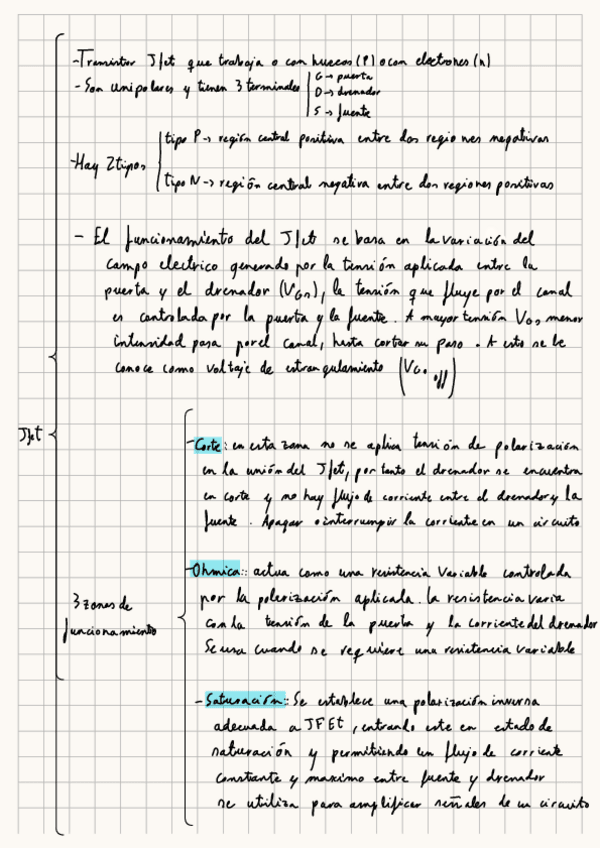 -Transistor Jfet que trabaja o con huecos (P) o con electrones (n)
-Son unipolares y tienen 3 terminales
G → puerta
D → drenador
S → fuente
-Hay 2 tipos
tipo P → región central positiva entre dos regiones negativas
tipo N → región central negativa entre dos regiones positivas
- El funcionamiento del Jfet se basa en la variación del
campo electrico generado por la tensión aplicada entre la
puerta y el drenador (VGD), la tensión que fluye por el canal
es controlada por la puerta y la fuente. A mayor tensión VGS menor
intensidad pasa por el canal, hasta cortar su paso. A esto se le
conoce como voltaje de estrangulamiento (VGS off)
Jfet
3 zonas de
funcionamiento
-Corte: en esta zona no se aplica tensión de polarización
en la unión del Jfet, por tanto el drenador se encuentra
en corte y no hay flujo de corriente entre el drenador y la
fuente. Apagar o interrumpir la corriente en un circuito
-Ohmica: actua como una resistencia variable controlada
por la polarización aplicada. la resistencia varia
con la tensión de la puerta y la corriente del drenador
Se usa cuando se requiere una resistencia variable
-Saturación: Se establece una polarización inversa
adecuada a JFEt, entrando este en estado de
saturación y permitiendo un flujo de corriente
constante y maximo entre fuente y drenador
se utiliza para amplificar señales de un circuito